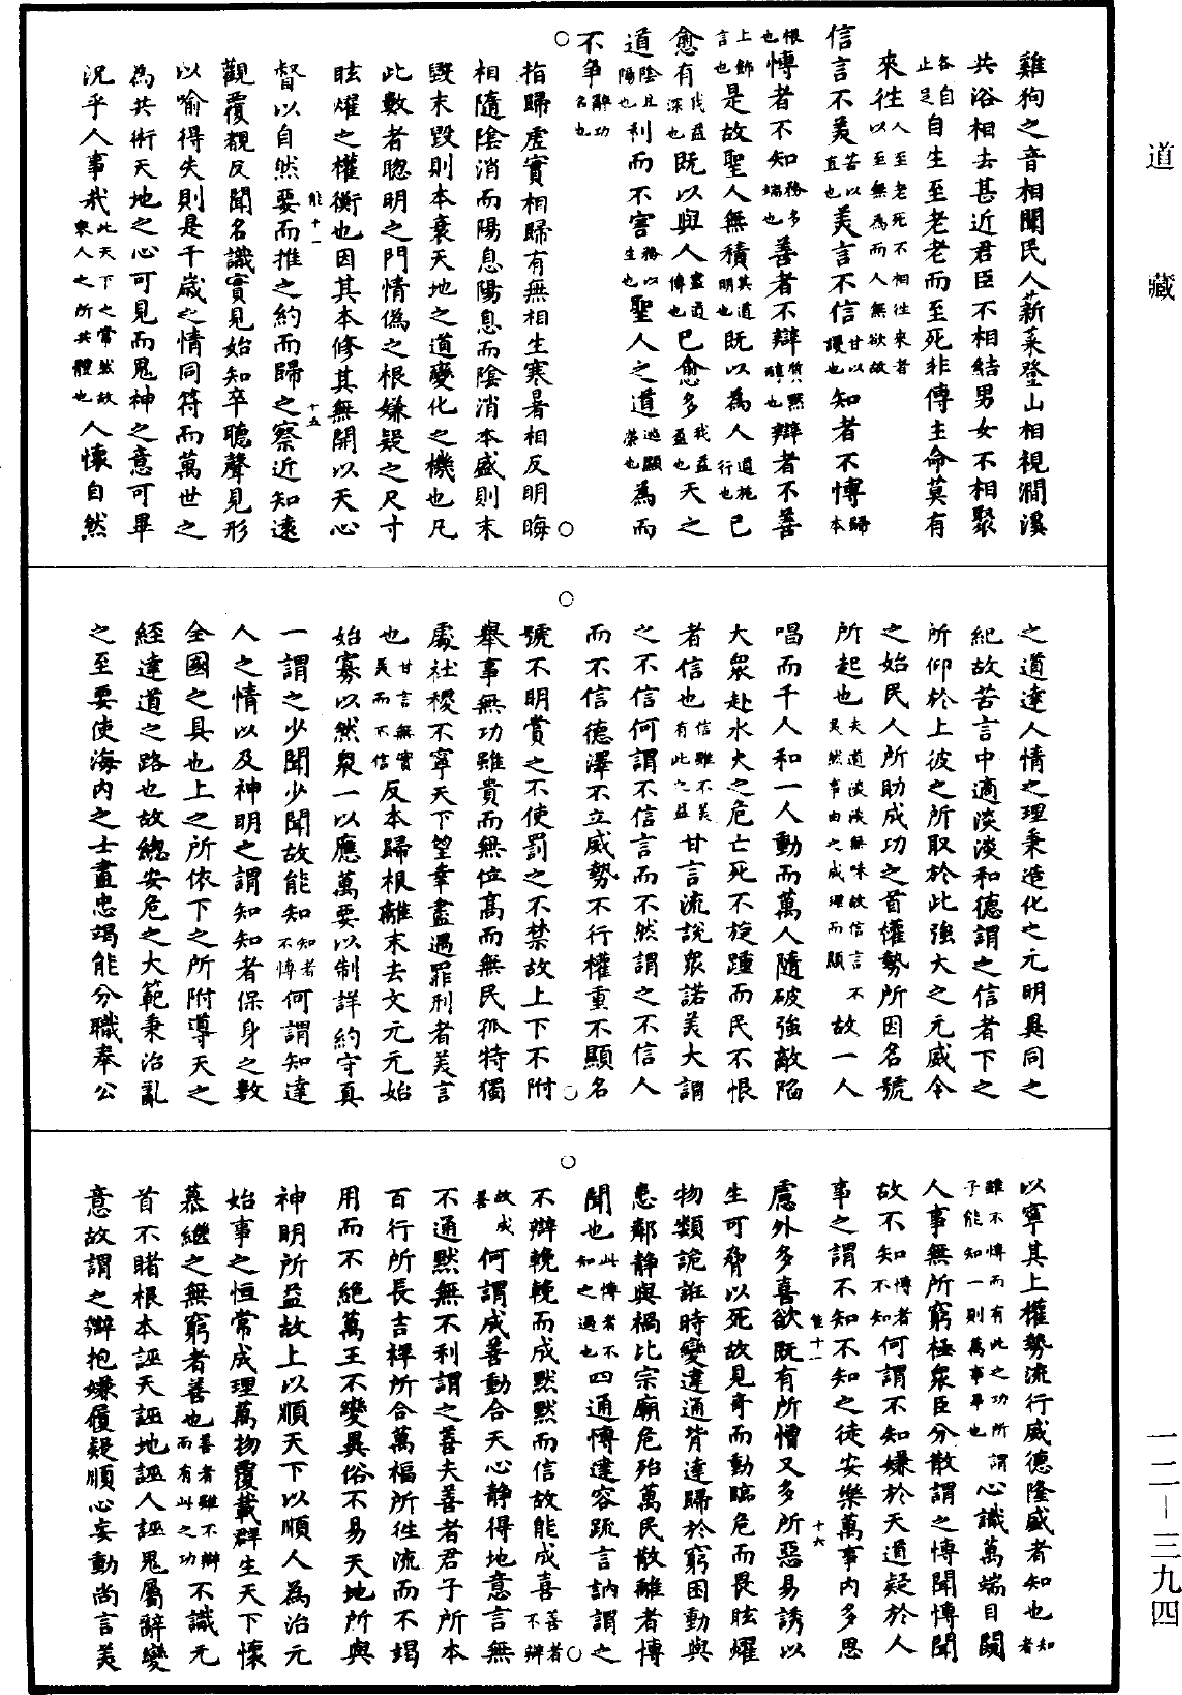 道藏
雞狗之音相聞民人薪菜登山相視澗溪
共浴相去甚近君臣不相結男女不相聚
各自止足自生至老老而至死非傳主命莫有
來往人至老死不相往來者以至無為而人無欲故
信言不美苦以直也美言不信甘以謾也知者不博歸本
根也博者不知務多端也善者不辯質默醇也辯者不善
上飾言也是故聖人無積其道明也既以為人道施行也己
愈有我益深也既以與人盡道博也己愈多我益盈也天之
道陰且陽也利而不害務以生也聖人之道遜顯榮也為而
不爭辭功名也
指歸虛實相歸有無相生寒暑相反明晦
相隨陰消而陽息陽息而陰消本盛則末
毀末毀則本衰天地之道變化之機也凡
此數者聰明之門情偽之根嫌疑之尺寸
眩燿之權衡也因其本修其無開以天心
能十一 十五
督以自然要而推之約而歸之察近知遠
觀覆覩反聞名識實見始知卒聽聲見形
以喻得失則是千歲之情同符而萬世之
為共術天地之心可見而鬼神之意可畢
況乎人事哉此天下之常然故衆人之所共體也人懷自然
之道達人情之理秉造化之元明異同之
紀故苦言中適淡淡和德謂之信者下之
所仰於上彼之所取於此強大之元威令
之始民人所助成功之首權勢所因名號
所起也夫道淡淡無味故信言不美然事由之成理而顯故一人
唱而千人和一人動而萬人隨破強敵陷
大衆赴水火之危亡死不旋踵而民不恨
者信也信雖不美有此之益甘言流說衆諾美大謂
之不信何謂不信言而不然謂之不信人
而不信德澤不立威勢不行權重不顯名
號不明賞之不使罰之不禁故上下不附
舉事無功雖貴而無位高而無民孤特獨
處社稷不寧天下望幸盡遇罪刑者美言
也甘言無實美而不信反本歸根離末去文元元始
始寡以然衆一以應萬要以制詳約守真
一謂之少聞少聞故能知知者不博何謂知達
人之情以及神明之謂知知者保身之數
全國之具也上之所依下之所附導天之
經達道之路也故總安危之大範秉治亂
之至要使海內之士盡忠竭能分職奉公
以寧其上權勢流行威德隆盛者知也知者
雖不博而有此之功所謂子能知一則萬事畢也心識萬端目闚
人事無所窮極衆臣分散謂之博聞博聞
故不知博者不知何謂不知嫌於天道疑於人
事之謂不知不知之徒安樂萬事內多思
慮外多喜欲既有所憎又多所惡易誘以
能十一 十六
生可脅以死故見奇而動臨危而畏眩燿
物類詭誑時變違通背達歸於窮困動與
患鄰靜與禍比宗廟危殆萬民散離者博
聞也此博者不知之過也四通博達容疏言訥謂之
不辯輓輓而成默默而信故能成喜善者不辯
故成善何謂成善動合天心靜得地意言無
不通默無不利謂之善夫善者君子所本
百行所長吉祥所合萬福所往流而不竭
用而不絕萬王不變異俗不易天地所與
神明所益故上以順天下以順人為治元
始事之恒常成理萬物覆載群生天下懷
慕繼之無窮者善也善者雖不辯而有此之功不識元
首不睹根本誣天誣地誣人誣鬼屬辭變
意故謂之辯抱嫌履疑順心妄動尚言美
一二－三九四